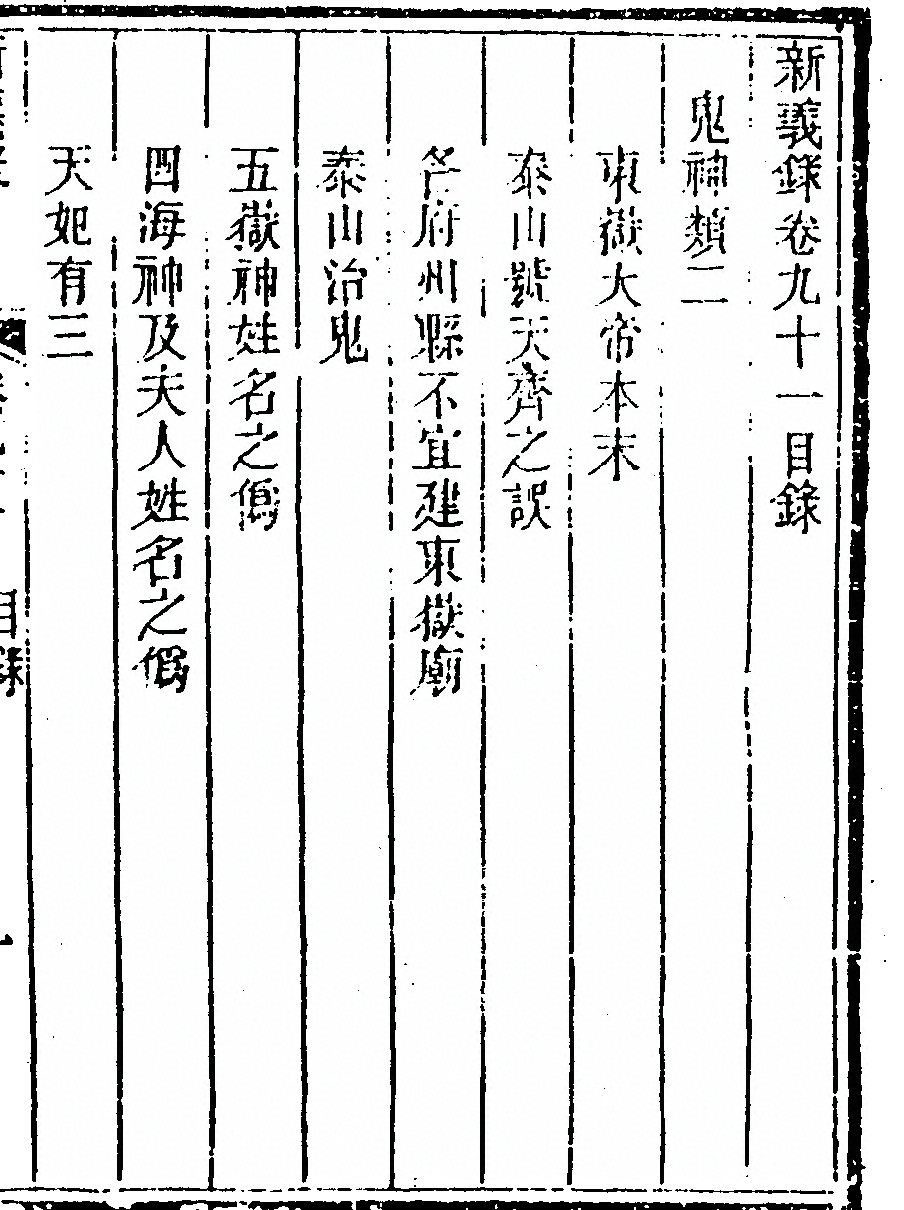 新義錄卷九十一目錄
鬼神類二
東嶽大帝本末
泰山號天齊之誤
各府州縣不宜建東嶽廟
泰山治鬼
五嶽神姓名之僞
四海神及夫人姓名之僞
天妃有三
目錄